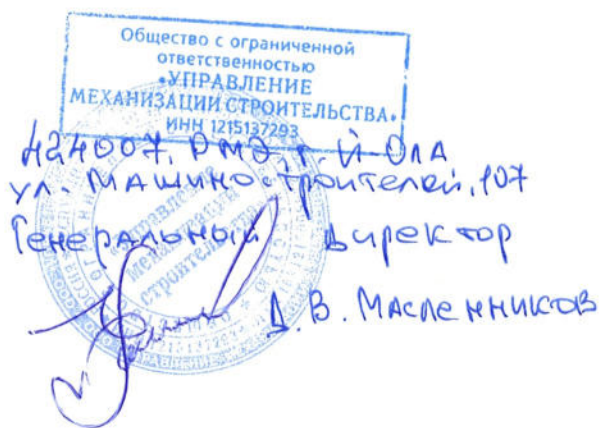 Общество с ограниченной
ответственностью
«УПРАВЛЕНИЕ
МЕХАНИЗАЦИИ СТРОИТЕЛЬСТВА»
ИНН 1215137293
424007, РМЭ, г. Й-Ола
ул. Машиностроителей, 107
Генеральный директор
Д.В. Масленников
Управление
механизации
строительства